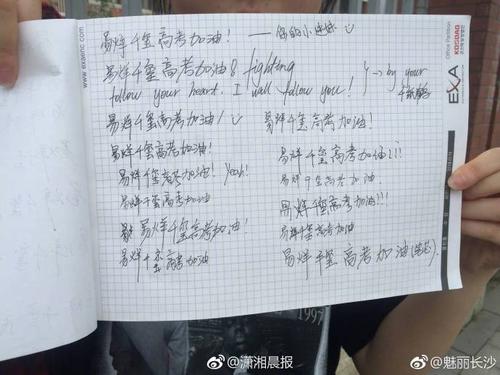 易烊千玺高考加油! —— 你的小迷妹
易烊千玺高考加油 & fighting
follow your heart. I will follow you! → by your 千纸鹤
易烊千玺高考加油!
易烊千玺高考加油!
易烊千玺高考加油! Yeah!
易烊千玺高考加油
易烊千玺高考加油!
易烊千玺高考加油
易烊千玺高考加油!
易烊千玺高考加油!!!
易烊千玺高考加油
易烊千玺高考加油!!!
易烊千玺高考加油
易烊千玺高考加油
www.exaeinc
Office Partition
KOSDAQ
EXA
1997
@潇湘晨报
@魅丽长沙